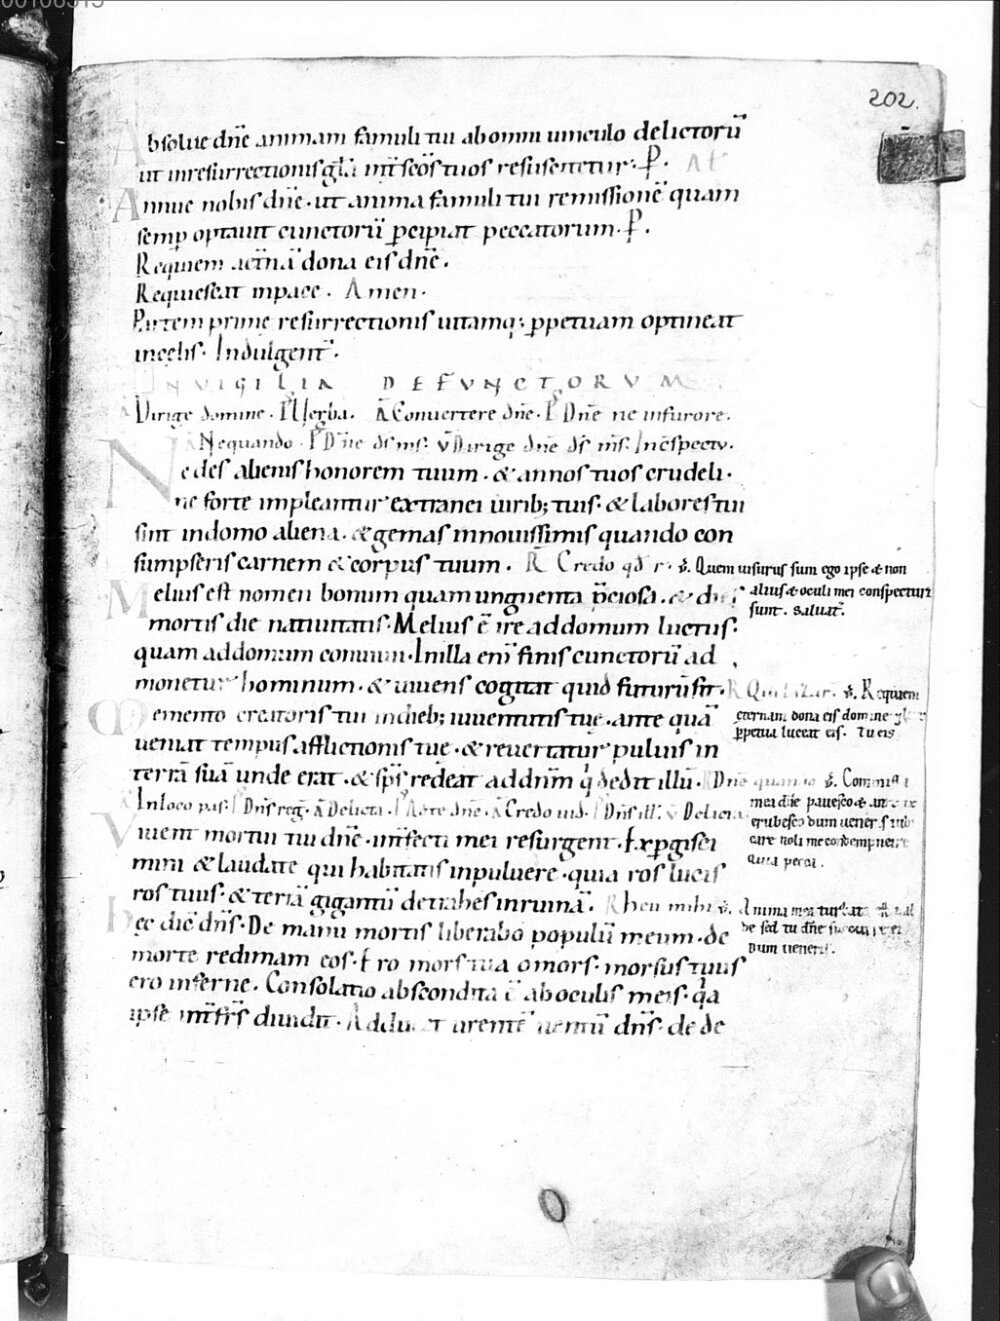 202.
Absolue dn̄e animam famuli tui abomni uinculo delictorū
ut inresurrectionis gl̄a int̄ sc̄os tuos resuscitetur · P. At
Annue nobis dn̄e · ut anima famuli tui remissionē quam
semp optauit cunctorū percipiat peccatorum · P.
Requiem aet̄nā dona eis dn̄e .
Requiescat inpace . Amen .
Partem prime resurrectionis uitamq; ppetuam optineat
incęlis · Indulgent̄ .
IN VIGILIA DEFVNCTORVM
A Dirige domine . Ps Uerba . A Conuertere dn̄e . Ps Dn̄e ne infurore .
A Nequando . Ps Dn̄e ds̄ ms̄ . V Dirige dn̄e ds̄ ms̄ . Inc̄spectu .
Ne des alienis honorem tuum . & annos tuos crudeli .
ne forte impleantur extranei uirib; tuis · & labores tui
sint indomo aliena . & gemas innouissimis quando con
sumpseris carnem & corpus tuum . R Credo qd r . V. Quem uisurus sum ego ipse & non
alius & oculi mei conspecturi
sunt . saluat̄ .
Melius est nomen bonum quam unguenta p̄ciosa . & dies
mortis die natiuitatis . Melius ē ire ad domum luctus .
quam ad domum conuiuii . In illa eni finis cunctorū ad
monetur hominum . & uiuens cogitat quid futurū sit . R Qui Lazar̄ . V. Requiem
eternam dona eis domine
ppetua luceat eis . Tu eis
Memento creatoris tui indieb; iuuentutis tuę . ante quā
ueniat tempus afflictionis tuę . & reuertatur puluis in
terrā suā unde erat . & sps̄ redeat ad dn̄m q dedit illū . R Dn̄e quando V. Commissa
mea dn̄e pauesco & ante te
erubesco dum ueneris iudi
care noli me condempnare
quia peccaui .
A Inloco pas . Ps Dn̄s reg̃ . A Delicta . Ps Ad te dn̄e . A Credo uid . Ps Dn̄s ill . V Delicta
Viuent mortui tui dn̄e . int̄fecti mei resurgent . Expgisci
mini & laudate qui habitatis inpuluere . quia ros lucis
ros tuus . & terrā gigantū detrahes inruinā . R heu mihi V. Anima mea turbata
dum ueneris .
Hęc dic̄ dn̄s . De manu mortis liberabo populū meum . de
morte redimam eos . Ero mors tua o mors . morsus tuus
ero inferne . Consolatio abscondita ē ab oculis meis . qa
ipse int̄ frs̄ diuidit . Adducet urentē uentū dn̄s . de de